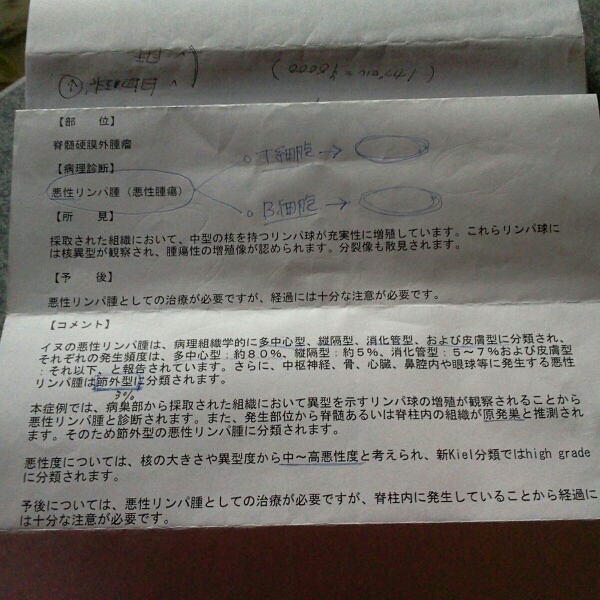 (1カ月 = ¥8000)
【部　位】
脊髄硬膜外腫瘤
【病理診断】
○T細胞→
悪性リンパ腫（悪性腫瘍）
○B細胞→
【所　見】
採取された組織において、中型の核を持つリンパ球が充実性に増殖しています。これらリンパ球に
は核異型が観察され、腫瘍性の増殖像が認められます。分裂像も散見されます。
【予　後】
悪性リンパ腫としての治療が必要ですが、経過には十分な注意が必要です。
【コメント】
イヌの悪性リンパ腫は、病理組織学的に多中心型、縦隔型、消化管型、および皮膚型に分類され、
それぞれの発生頻度は、多中心型：約８０％、縦隔型：約５％、消化管型：５～７％および皮膚型
：それ以下、と報告されています。さらに、中枢神経、骨、心臓、鼻腔内や眼球等に発生する悪性
リンパ腫は節外型に分類されます。
3%
本症例では、病巣部から採取された組織において異型を示すリンパ球の増殖が観察されることから
悪性リンパ腫と診断されます。また、発生部位から脊髄あるいは脊柱内の組織が原発巣と推測され
ます。そのため節外型の悪性リンパ腫に分類されます。
悪性度については、核の大きさや異型度から中～高悪性度と考えられ、新Kiel分類ではhigh grade
に分類されます。
予後については、悪性リンパ腫としての治療が必要ですが、脊柱内に発生していることから経過に
は十分な注意が必要です。